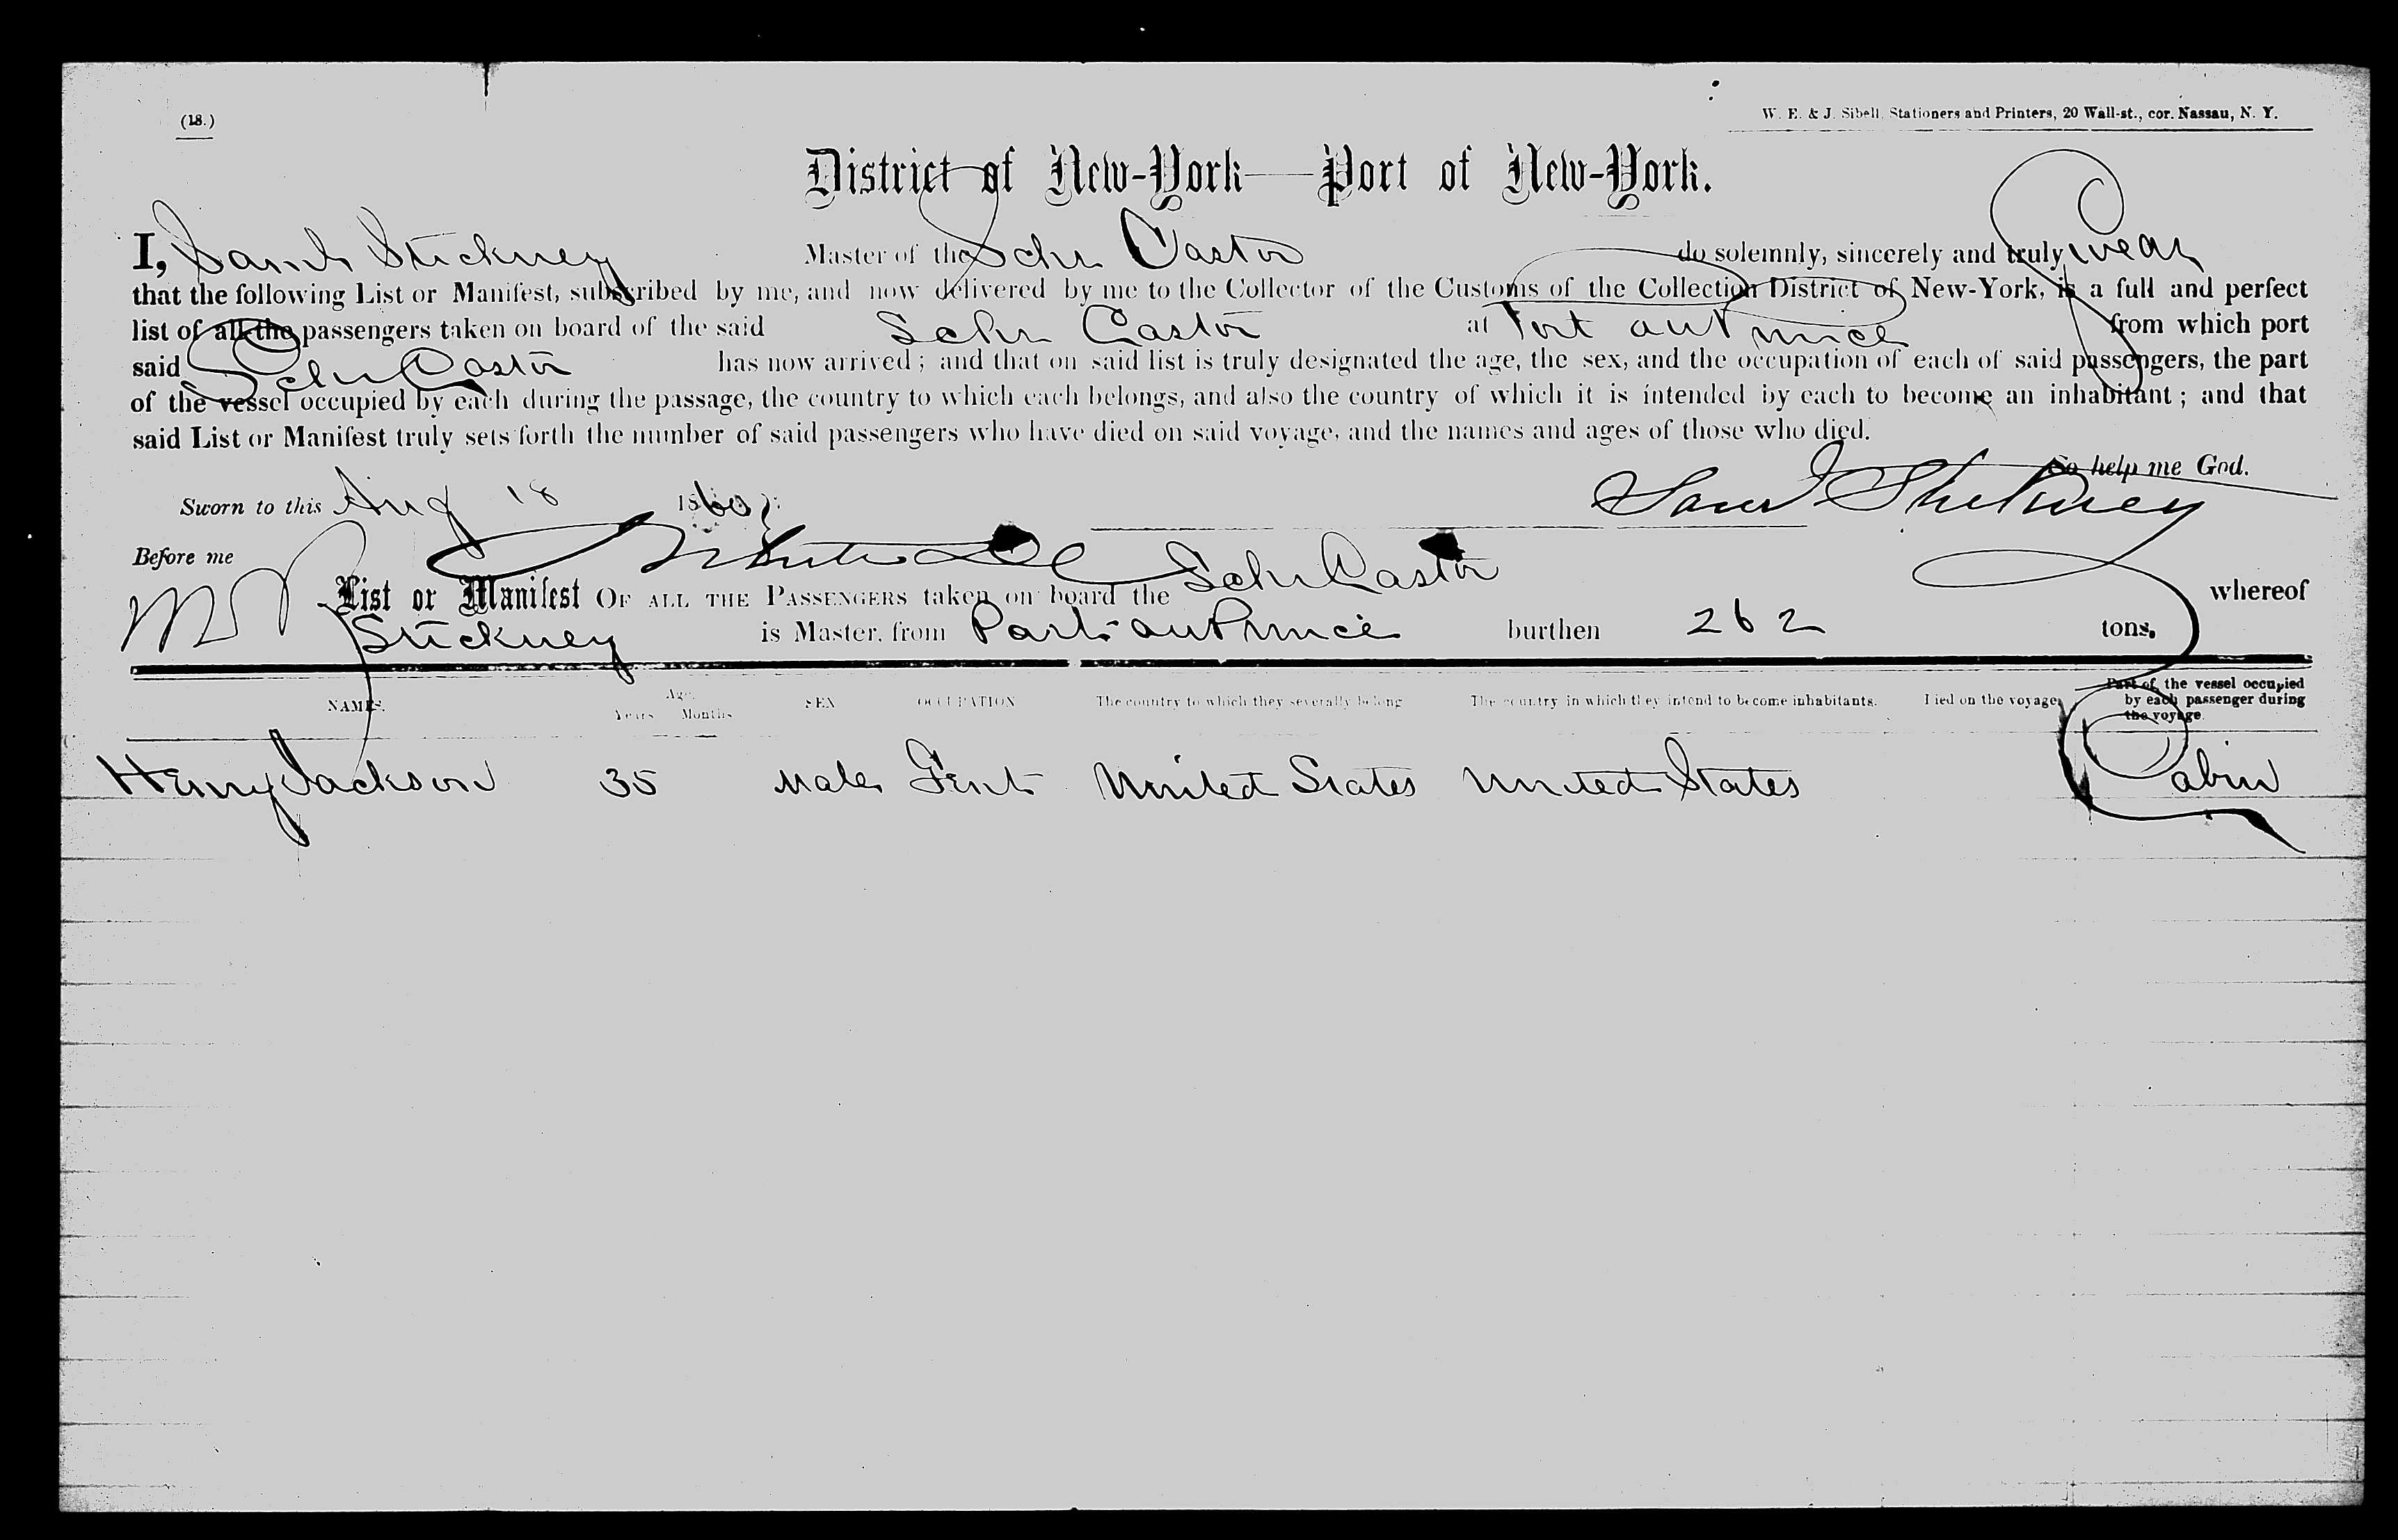 (18.)
W. E. & J. Sibell, Stationers and Printers, 20 Wall-st., cor. Nassau, N. Y.
District of New-York—Port of New-York.
I, Saml Stickney Master of the Schr Castor do solemnly, sincerely and truly swear
that the following List or Manifest, subscribed by me, and now delivered by me to the Collector of the Customs of the Collection District of New-York, is a full and perfect
list of all the passengers taken on board of the said Schr Castor at Port au Prince from which port
said Schr Castor has now arrived; and that on said list is truly designated the age, the sex, and the occupation of each of said passengers, the part
of the vessel occupied by each during the passage, the country to which each belongs, and also the country of which it is intended by each to become an inhabitant; and that
said List or Manifest truly sets forth the number of said passengers who have died on said voyage, and the names and ages of those who died.
So help me God.
Sworn to this Aug 18 1860
Saml Stickney
Before me
List or Manifest OF ALL THE PASSENGERS taken on board the Schr Castor whereof
Stickney is Master, from Port au Prince burthen 262 tons.
NAMES. Age. Years Months SEX OCCUPATION The country to which they severally belong The country in which they intend to become inhabitants. Died on the voyage Part of the vessel occupied by each passenger during the voyage.
Henry Jackson 35 Male Gent United States United States Cabin